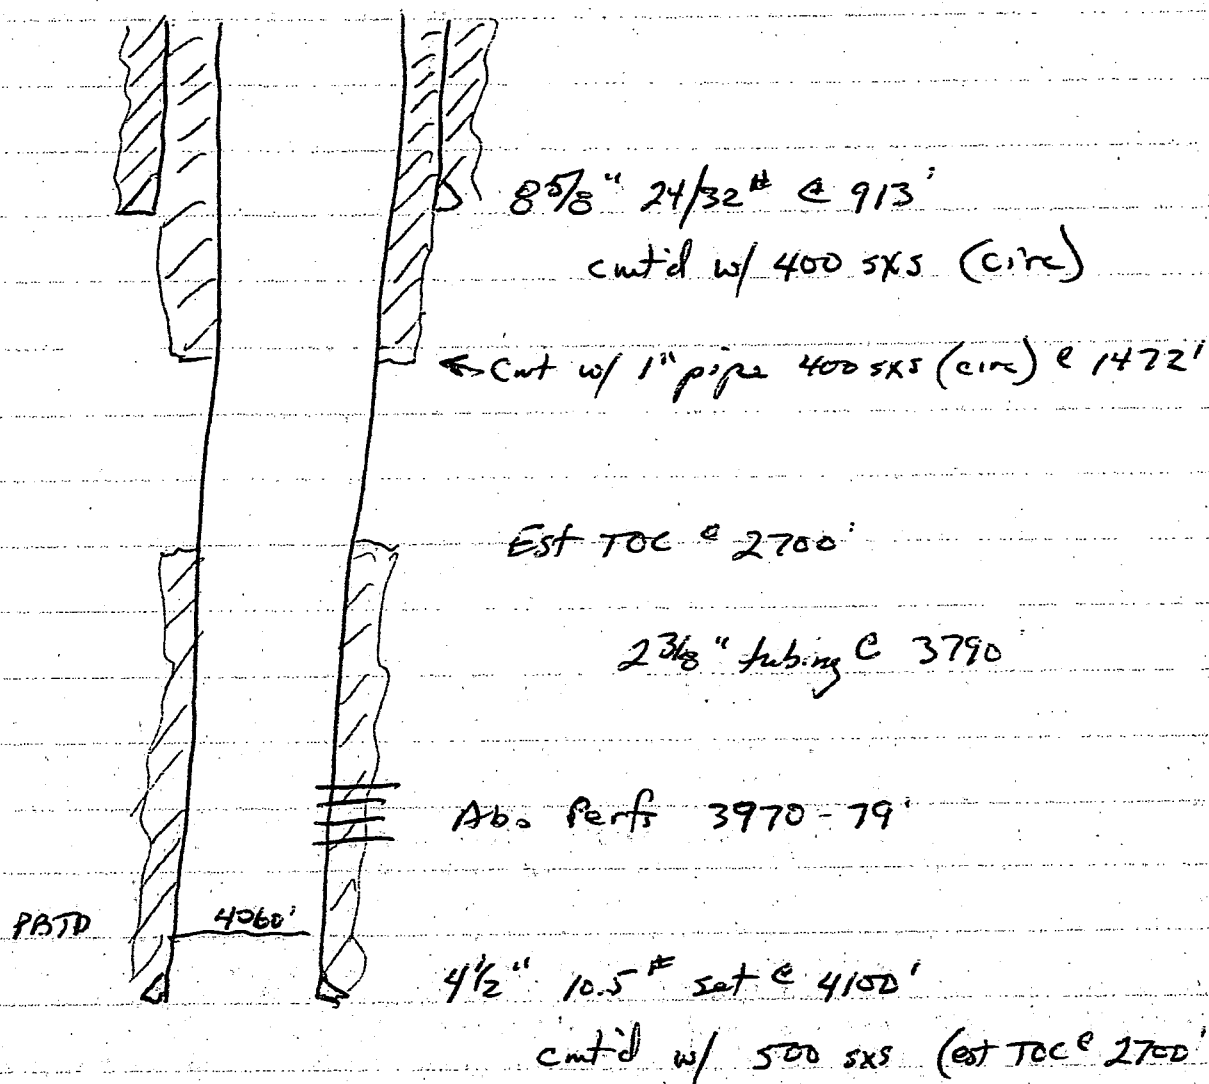 8 5/8" 24/32# @ 913'
cmt'd w/ 400 sxs (circ)
← Cmt w/ 1" pipe 400 sxs (circ) @ 1472'
Est TOC @ 2700'
2 3/8" tubing @ 3790'
Abo Perfs 3970-79'
PBTD 4060'
4 1/2" 10.5# set @ 4100'
cmt'd w/ 500 sxs (est TOC @ 2700'